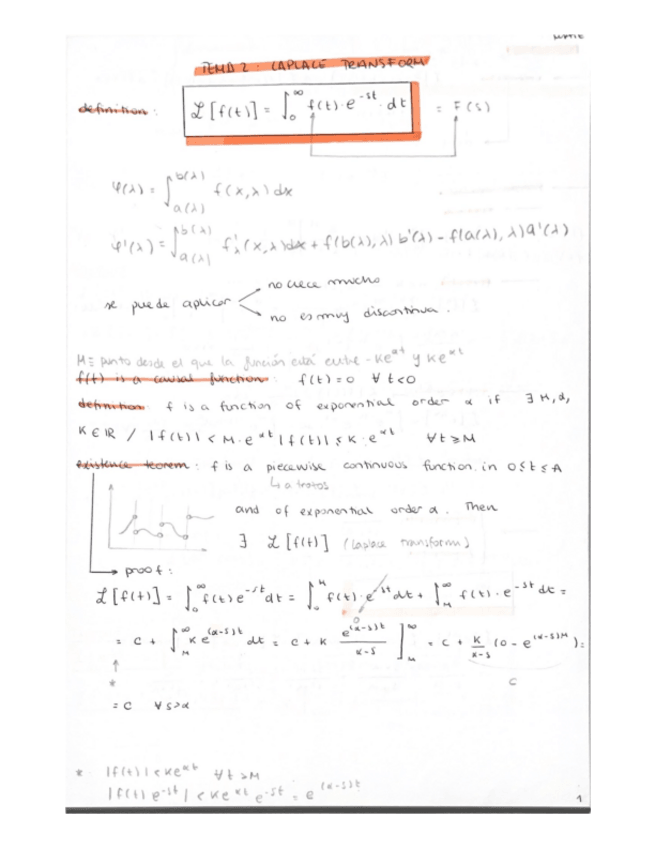 TEMA 2: LAPLACE TRANSFORM
definition: ℒ[f(t)] = ∫₀^∞ f(t)·e^(-st)·dt = F(s)
φ(λ) = ∫_{a(λ)}^{b(λ)} f(x,λ)dx
φ'(λ) = ∫_{a(λ)}^{b(λ)} f'_λ(x,λ)dx + f(b(λ),λ) b'(λ) - f(a(λ),λ)a'(λ)
no crece mucho
se puede aplicar
no es muy discontinua.
M ≡ punto desde el que la función está entre -Ke^(αt) y Ke^(αt)
f(t) is a causal function: f(t)=0 ∀ t<0
definition: f is a function of exponential order α if ∃ M, α,
K ∈ ℝ / |f(t)| < M·e^(αt) |f(t)| ≤ K·e^(αt) ∀t ≥ M
existence teorem: f is a piecewise continuous function in 0≤t≤A
↳ a trozos
and of exponential order α. Then
∃ ℒ[f(t)] (Laplace transform)
proof:
ℒ[f(t)] = ∫₀^∞ f(t)e^(-st)dt = ∫₀^M f(t)·e^(-st)dt + ∫_M^∞ f(t)·e^(-st)dt =
= C + ∫_M^∞ Ke^((α-s)t) dt = C + K e^((α-s)t)/(α-s) ]_M^∞ = C + K/(α-s) (0 - e^((α-s)M)) =
* C
= C ∀ s>α
* |f(t)| < Ke^(αt) ∀t ≥ M
|f(t) e^(-st)| < Ke^(αt) e^(-st) = e^((α-s)t)
1